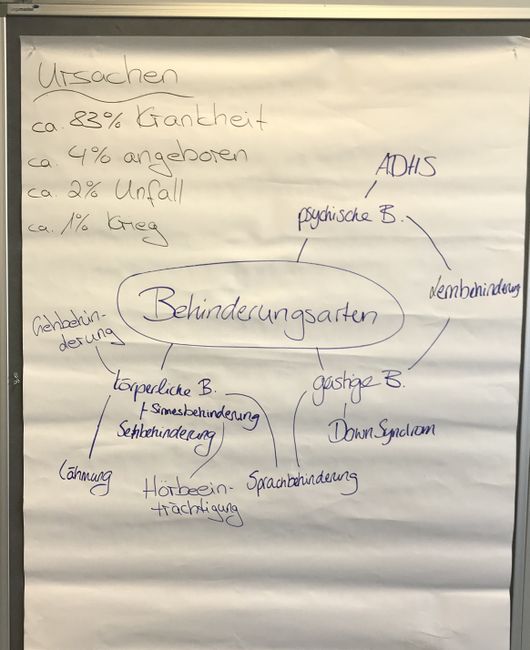 Ursachen
ca. 83% Krankheit
ca. 4% angeboren
ca. 2% Unfall
ca. 1% Krieg
ADHS
psychische B.
Lernbehinderung
Behinderungsarten
Gehbehin-
derung
körperliche B.
+ Sinnesbehinderung
Sehbehinderung
geistige B.
Down Syndrom
Lähmung
Hörbeein-
trächtigung
Sprachbehinderung